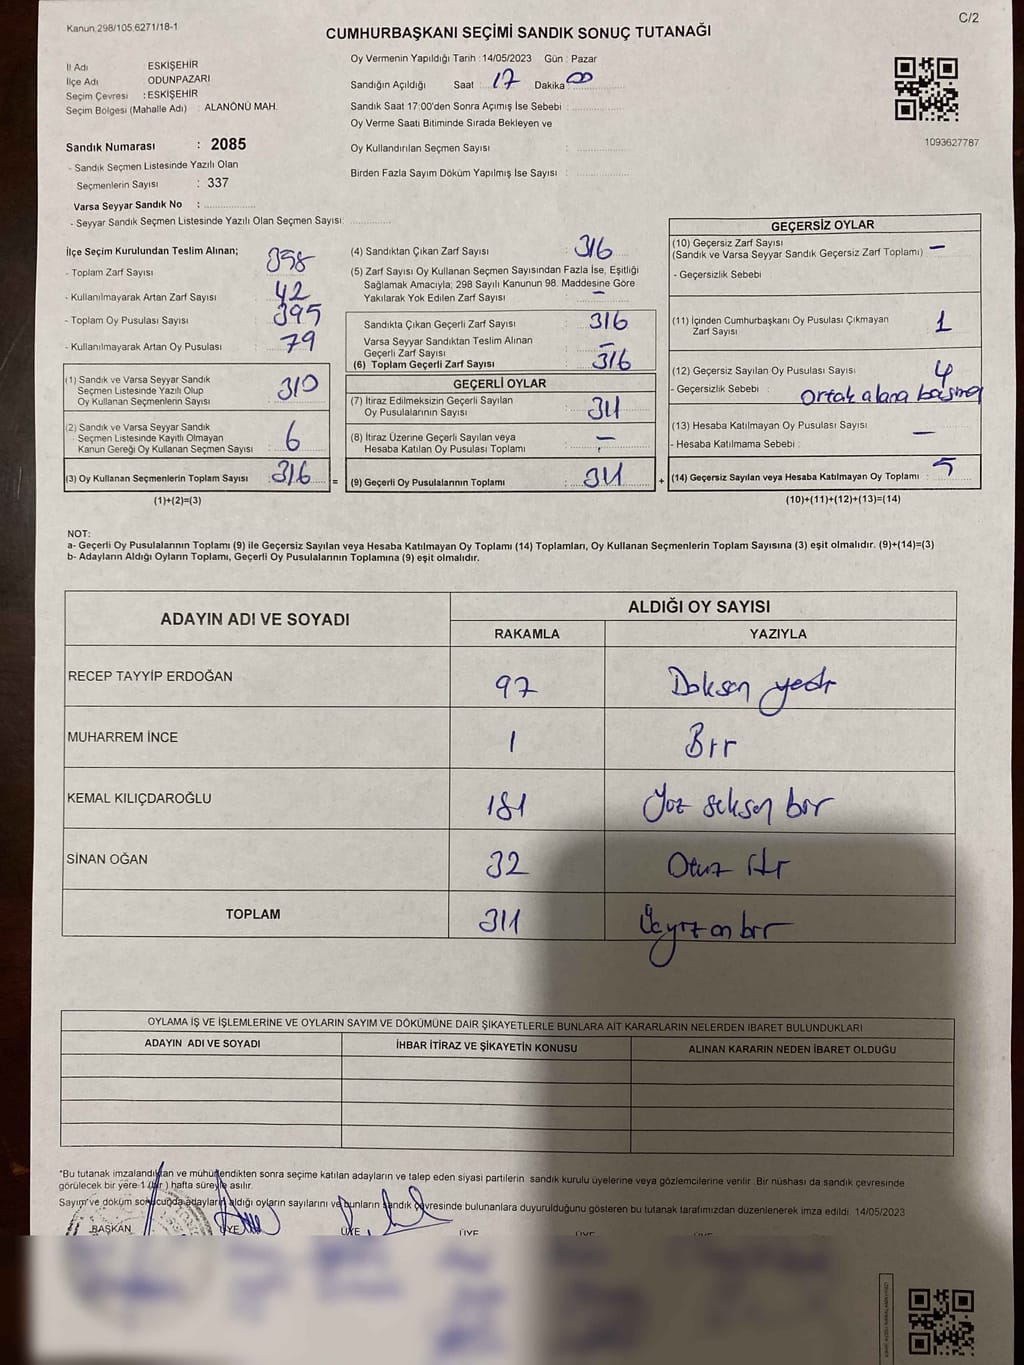 Kanun 298/105 6271/18-1
C/2
CUMHURBAŞKANI SEÇİMİ SANDIK SONUÇ TUTANAĞI
İl Adı ESKİŞEHİR
İlçe Adı ODUNPAZARI
Seçim Çevresi : ESKİŞEHİR
Seçim Bölgesi (Mahalle Adı) : ALANÖNÜ MAH.
Sandık Numarası : 2085
- Sandık Seçmen Listesinde Yazılı Olan
Seçmenlerin Sayısı : 337
Varsa Seyyar Sandık No :
- Seyyar Sandık Seçmen Listesinde Yazılı Olan Seçmen Sayısı:
Oy Vermenin Yapıldığı Tarih : 14/05/2023 Gün : Pazar
Sandığın Açıldığı Saat : 17 Dakika 00
Sandık Saat 17:00'den Sonra Açımış İse Sebebi :
Oy Verme Saati Bitiminde Sırada Bekleyen ve
Oy Kullandırılan Seçmen Sayısı :
Birden Fazla Sayım Döküm Yapılmış İse Sayısı :
1093627787
İlçe Seçim Kurulundan Teslim Alınan;
- Toplam Zarf Sayısı : 358
- Kullanılmayarak Artan Zarf Sayısı : 42
- Toplam Oy Pusulası Sayısı : 395
- Kullanılmayarak Artan Oy Pusulası : 79
(1) Sandık ve Varsa Seyyar Sandık
Seçmen Listesinde Yazılı Olup
Oy Kullanan Seçmenlerin Sayısı : 310
(2) Sandık ve Varsa Seyyar Sandık
Seçmen Listesinde Kayıtlı Olmayan
Kanun Gereği Oy Kullanan Seçmen Sayısı : 6
(3) Oy Kullanan Seçmenlerin Toplam Sayısı : 316
(1)+(2)=(3)
(4) Sandıktan Çıkan Zarf Sayısı : 316
(5) Zarf Sayısı Oy Kullanan Seçmen Sayısından Fazla İse, Eşitliği
Sağlamak Amacıyla; 298 Sayılı Kanunun 98. Maddesine Göre
Yakılarak Yok Edilen Zarf Sayısı : —
Sandıkta Çıkan Geçerli Zarf Sayısı : 316
Varsa Seyyar Sandıktan Teslim Alınan
Geçerli Zarf Sayısı : —
(6) Toplam Geçerli Zarf Sayısı : 316
GEÇERLİ OYLAR
(7) İtiraz Edilmeksizin Geçerli Sayılan
Oy Pusulalarının Sayısı : 311
(8) İtiraz Üzerine Geçerli Sayılan veya
Hesaba Katılan Oy Pusulası Toplamı : —
= (9) Geçerli Oy Pusulalarının Toplamı : 311 +
GEÇERSİZ OYLAR
(10) Geçersiz Zarf Sayısı
(Sandık ve Varsa Seyyar Sandık Geçersiz Zarf Toplamı) : —
- Geçersizlik Sebebi
(11) İçinden Cumhurbaşkanı Oy Pusulası Çıkmayan
Zarf Sayısı 1
(12) Geçersiz Sayılan Oy Pusulası Sayısı : 4
- Geçersizlik Sebebi : ortak alana basma
(13) Hesaba Katılmayan Oy Pusulası Sayısı : —
- Hesaba Katılmama Sebebi :
(14) Geçersiz Sayılan veya Hesaba Katılmayan Oy Toplamı : 5
(10)+(11)+(12)+(13)=(14)
NOT:
a- Geçerli Oy Pusulalarının Toplamı (9) ile Geçersiz Sayılan veya Hesaba Katılmayan Oy Toplamı (14) Toplamları, Oy Kullanan Seçmenlerin Toplam Sayısına (3) eşit olmalıdır. (9)+(14)=(3)
b- Adayların Aldığı Oyların Toplamı, Geçerli Oy Pusulalarının Toplamına (9) eşit olmalıdır.
ADAYIN ADI VE SOYADI ALDIĞI OY SAYISI
RAKAMLA YAZIYLA
RECEP TAYYİP ERDOĞAN 97 Doksan yedi
MUHARREM İNCE 1 Bir
KEMAL KILIÇDAROĞLU 181 Yüz seksen bir
SİNAN OĞAN 32 Otuz iki
TOPLAM 311 Üçyüz on bir
OYLAMA İŞ VE İŞLEMLERİNE VE OYLARIN SAYIM VE DÖKÜMÜNE DAİR ŞİKAYETLERLE BUNLARA AİT KARARLARIN NELERDEN İBARET BULUNDUKLARI
ADAYIN ADI VE SOYADI İHBAR İTİRAZ VE ŞİKAYETİN KONUSU ALINAN KARARIN NEDEN İBARET OLDUĞU
*Bu tutanak imzalandıktan ve mühürlendikten sonra seçime katılan adayların ve talep eden siyasi partilerin sandık kurulu üyelerine veya gözlemcilerine verilir. Bir nüshası da sandık çevresinde
görülecek bir yere 1 (bir) hafta süreyle asılır.
Sayım ve döküm sonucunda adayların aldığı oyların sayılarını ve bunların sandık çevresinde bulunanlara duyurulduğunu gösteren bu tutanak tarafımızdan düzenlenerek imza edildi. 14/05/2023
BAŞKAN ÜYE ÜYE ÜYE